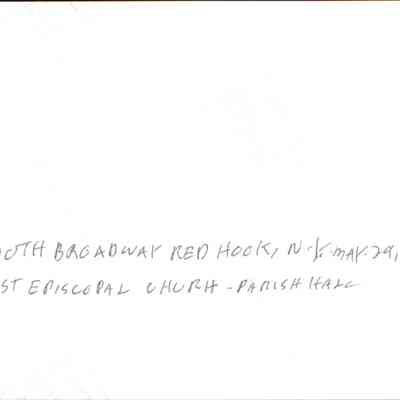 OUTH BROADWAY RED HOOK, N.Y. MAY. 29,
ST EPISCOPAL CHURH - PARISH HALL